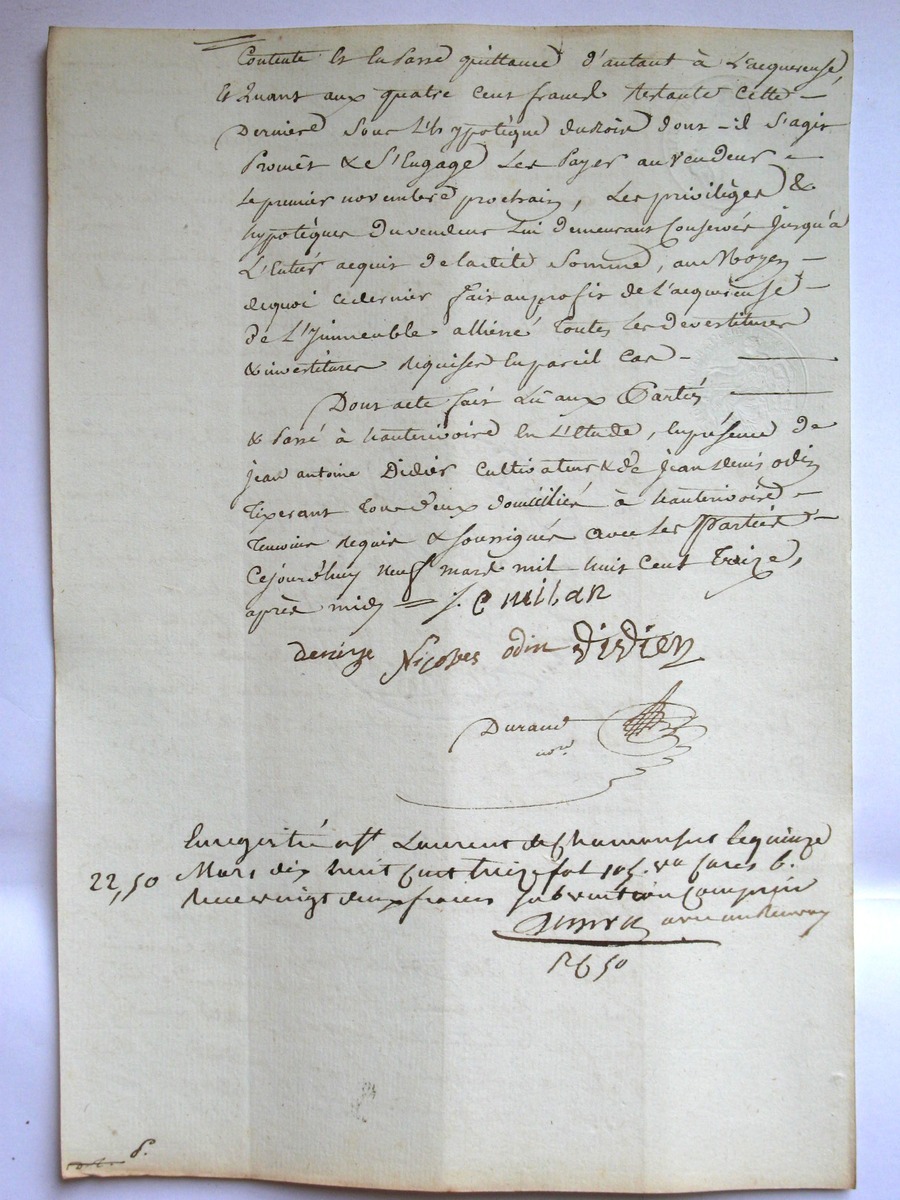 Contente et en passe quittance d'autant à L'acquereuse,
Et Quant aux quatre cent francs restants cette
Derniere sous L'hypotèque du bois dont il s'agit
Promêt & s'Engage Les Payer au Vendeur
Le premier novembre prochain, Les privilèges &
hypotèques du vendeur Lui demeurant Conservés Jusqu'à
L'Entier acquit de ladite Somme, au Moyen
de quoi ce dernier fait au profit de l'acquereuse
de L'Immeuble alliéné toutes Les devestitures
& investitures requises En pareil cas
Dont acte fait Lu aux Parties
& Passé à hauterivoire En L'Etude, En présence de
jean antoine Didier Cultivateur & de jean denis odin
Tixerant tous deux domiciliés à hauterivoire
Temoins requis & soussignés avec les parties
Cejourd'huy neuf mars mil huit cent treize,
après midy
denise Nicolas odin didier
Durand
nore
Enregistré à St Laurent de Chamousset le quinze
22,50 Mars dix huit cent treize fol 105 vo Cases 6.
Reçu vingt deux francs Subvention Comprise